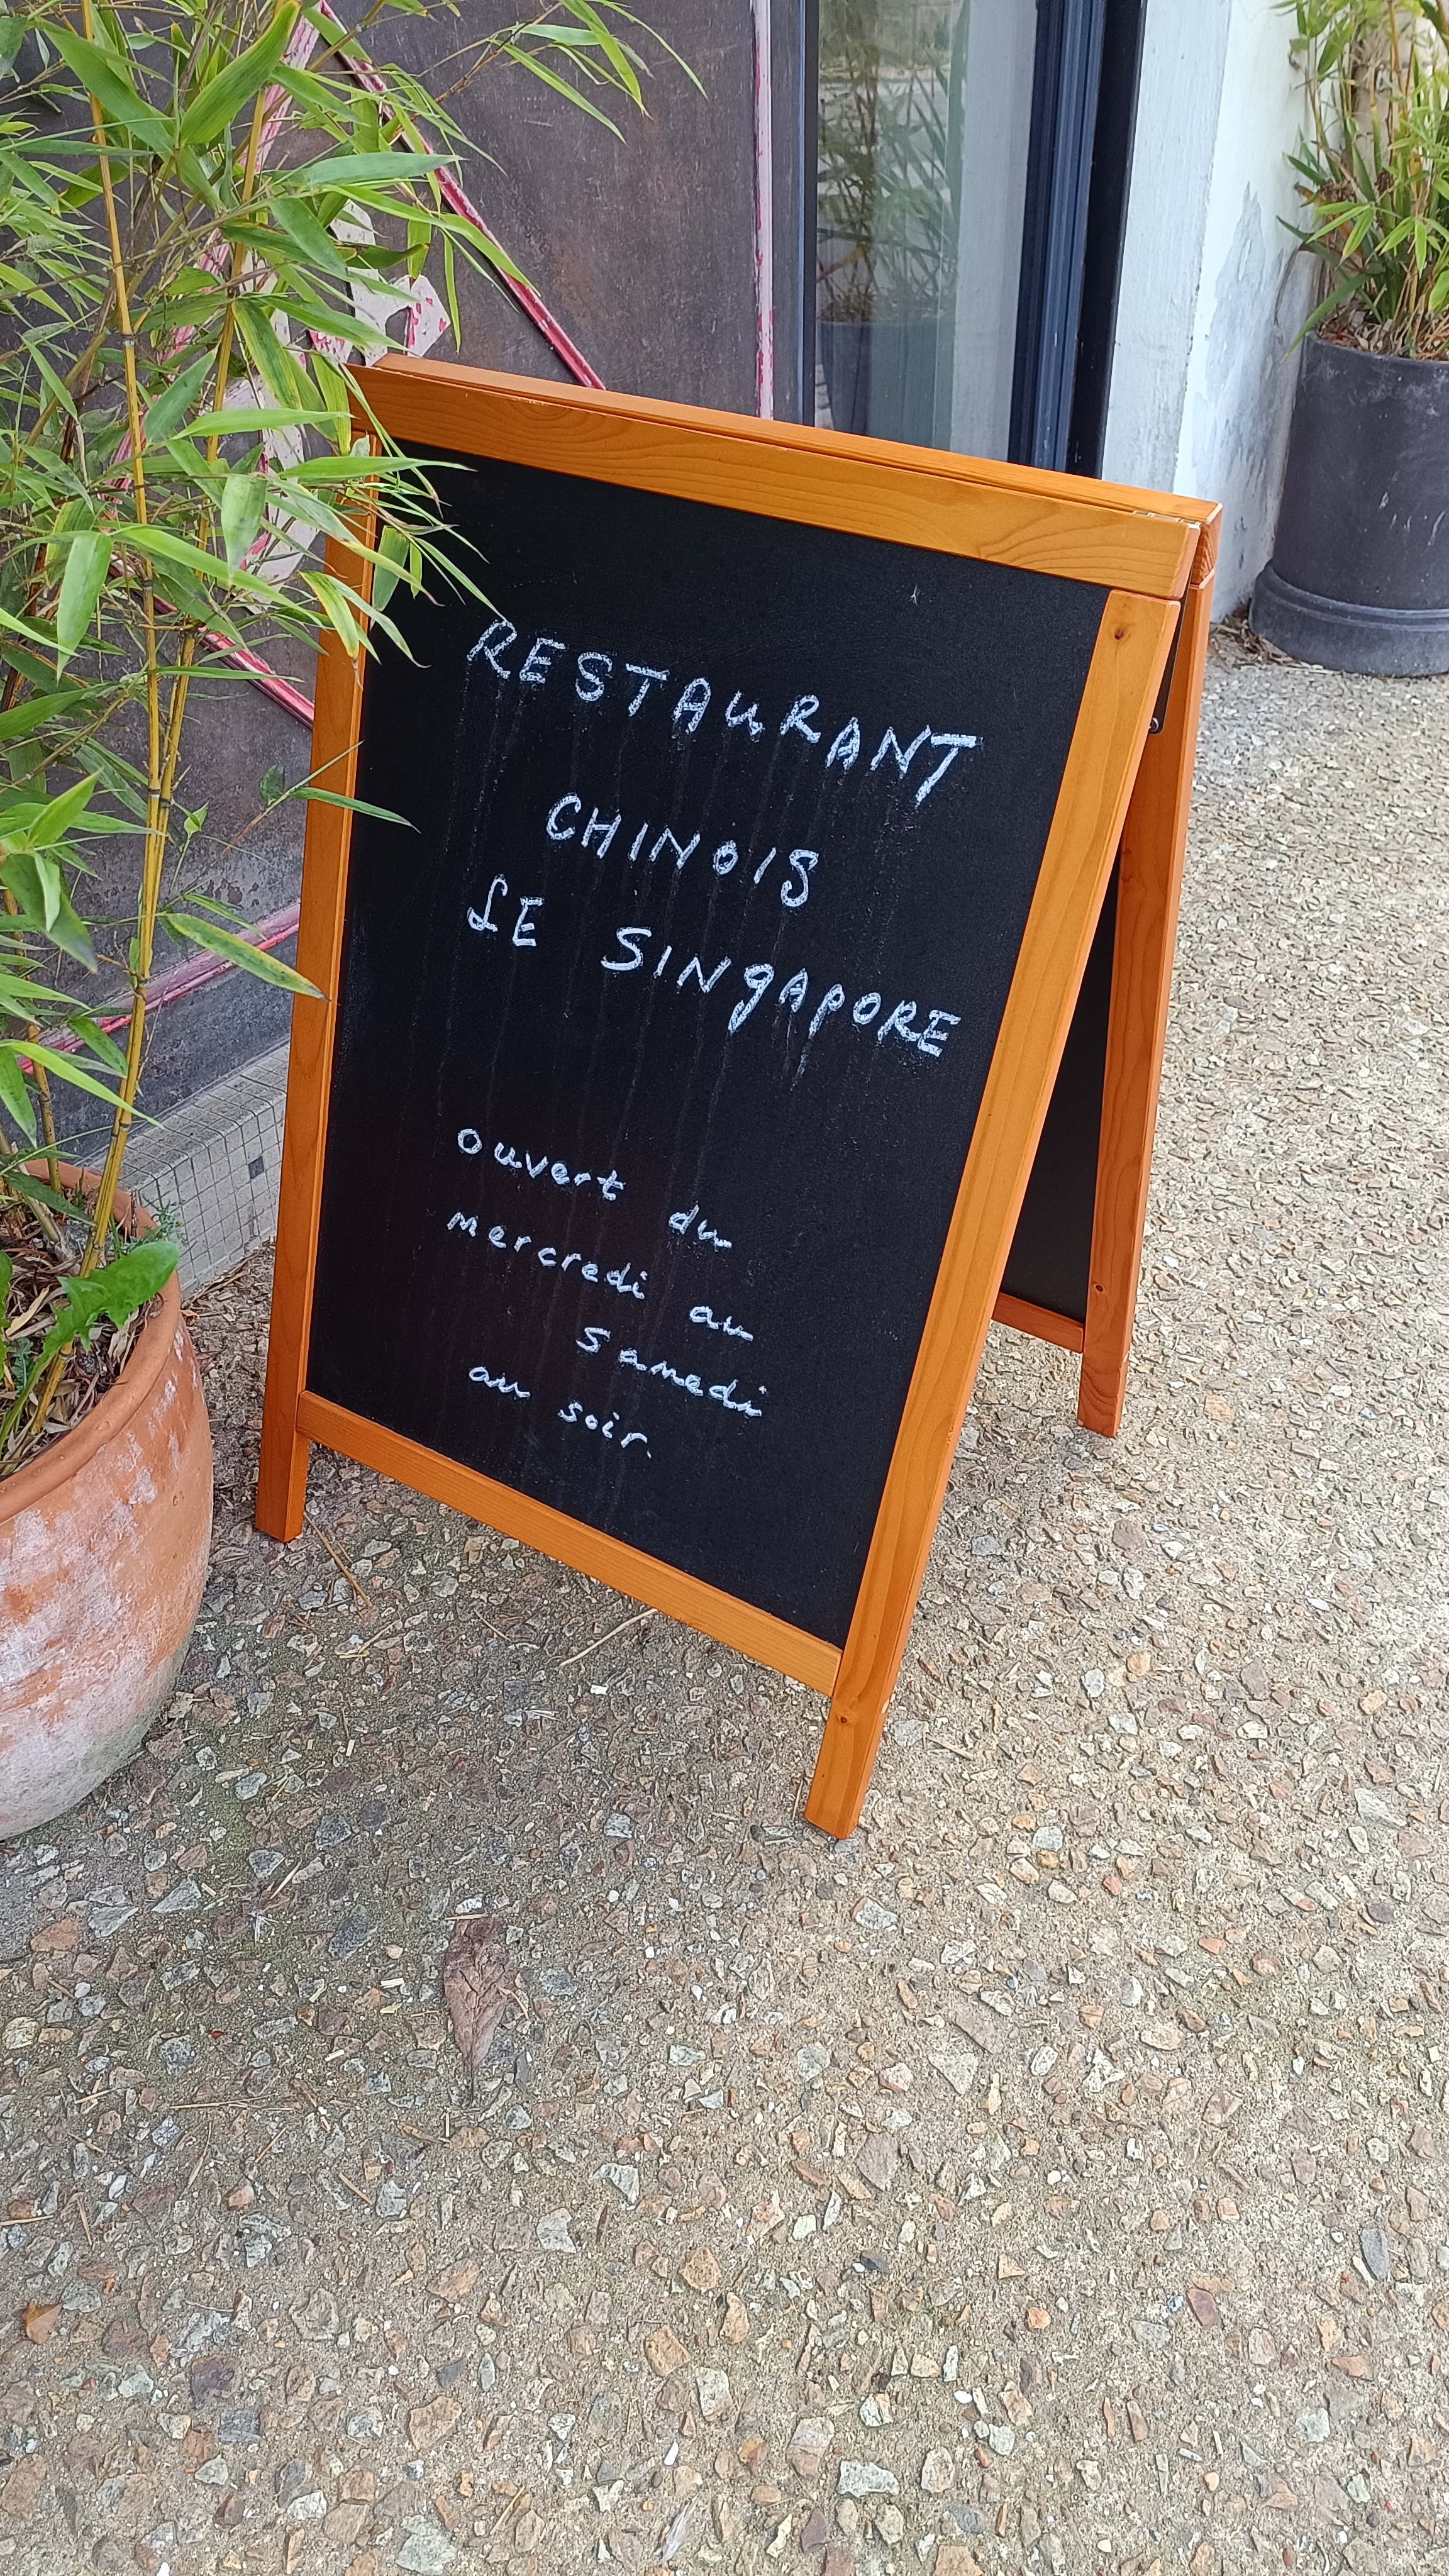 RESTAURANT
CHINOIS
LE SINGAPORE
ouvert du
mercredi au
samedi
au soir.